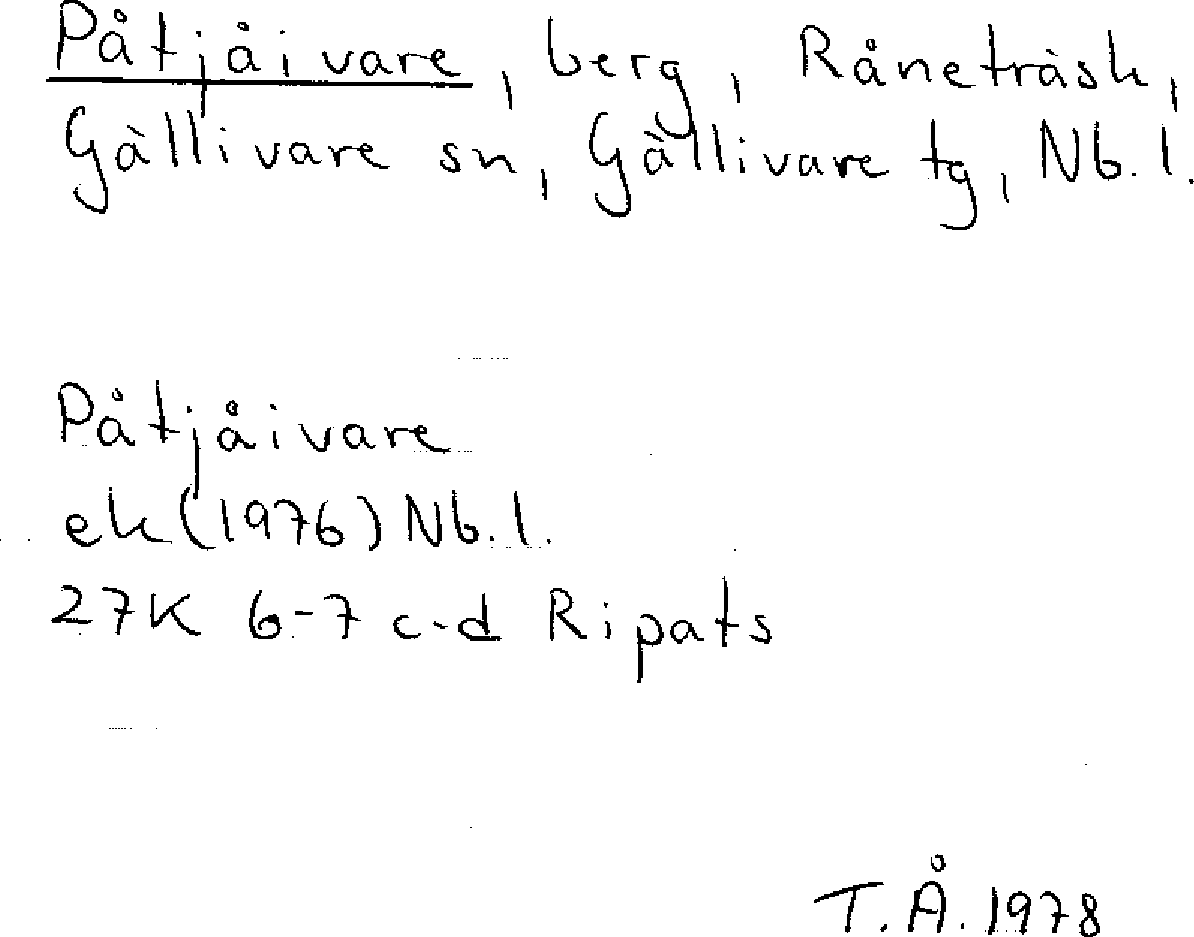 Påtjåivare, berg, Råneträsk,
Gällivare sn, Gällivare tg, Nb. l.
Påtjåivare
ek (1976) Nb. l.
27K 6-7 c-d Ripats
T. Å. 1978